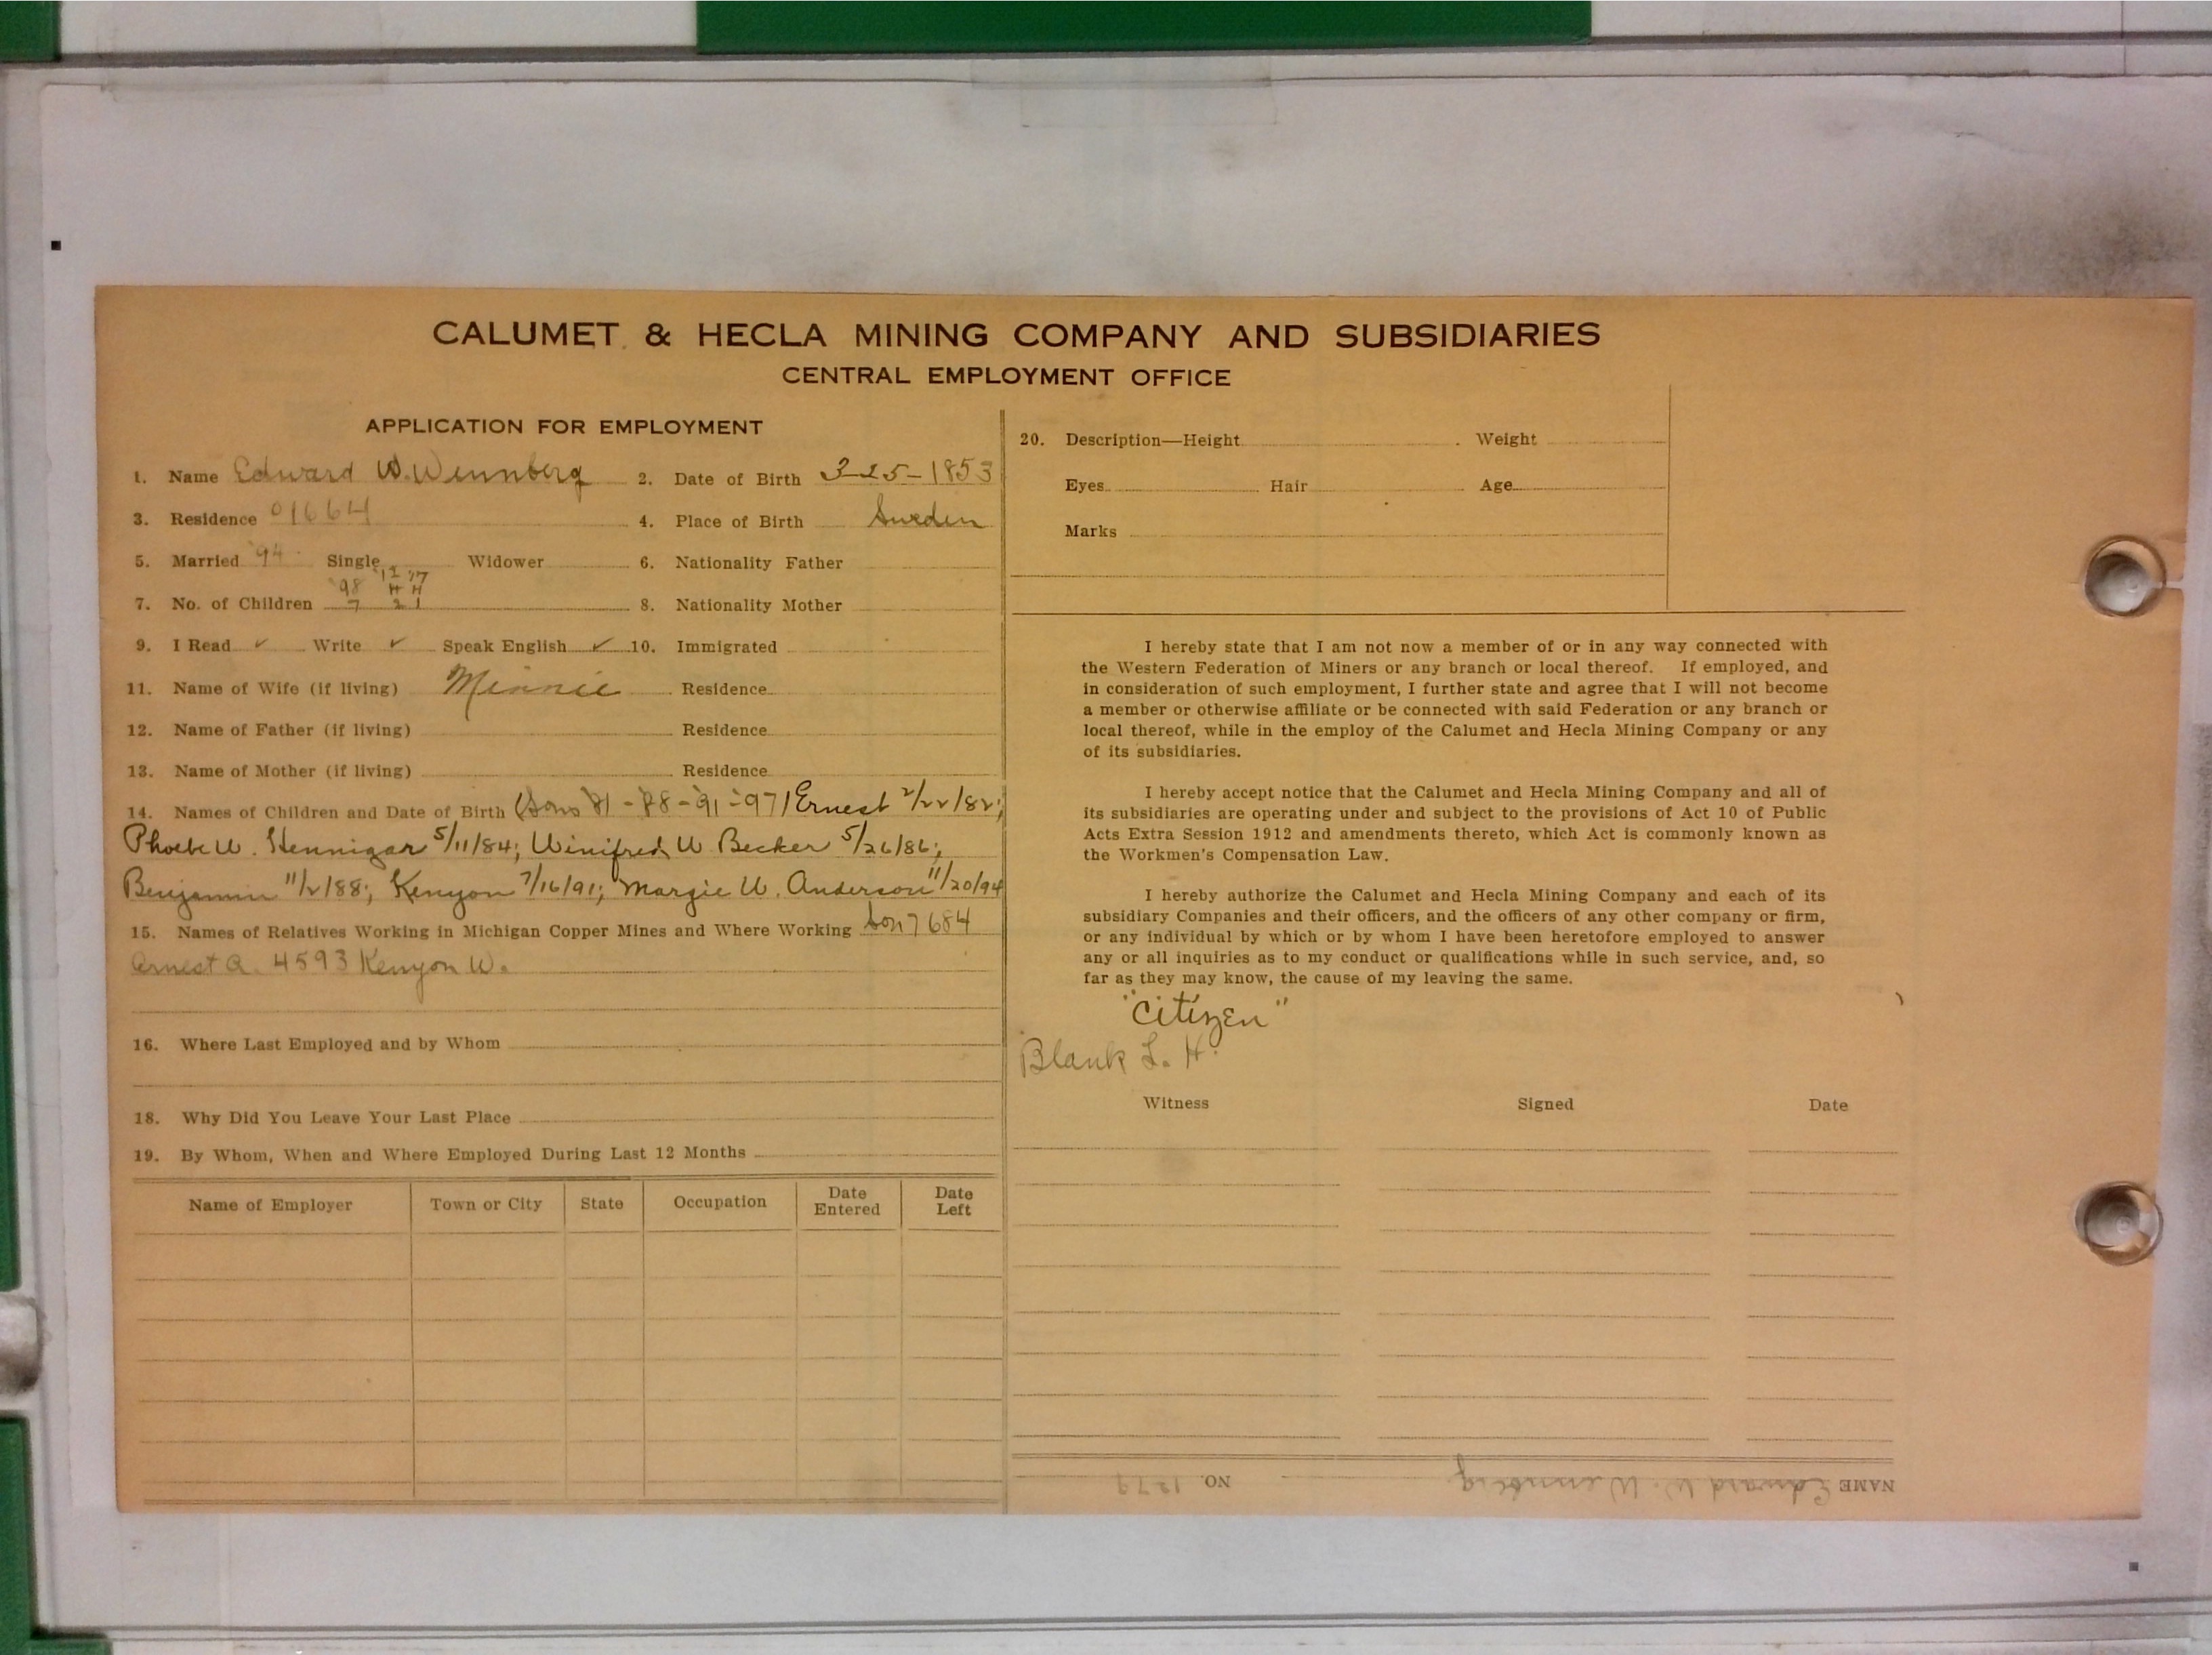 CALUMET & HECLA MINING COMPANY AND SUBSIDIARIES
CENTRAL EMPLOYMENT OFFICE
APPLICATION FOR EMPLOYMENT
1. Name Edward W. Wennberg 2. Date of Birth 3-25-1853
3. Residence 01664 4. Place of Birth Sweden
5. Married '94 Single Widower 6. Nationality Father
'98 '12 '17
4 4
7. No. of Children 7 2 1 8. Nationality Mother
9. I Read ✓ Write ✓ Speak English ✓ 10. Immigrated
11. Name of Wife (if living) Minnie Residence
12. Name of Father (if living) Residence
13. Name of Mother (if living) Residence
14. Names of Children and Date of Birth (Sons 81 - 88 - 91 - 97) Ernest 2/22/82;
Phoebe W. Hennigar 5/11/84; Winifred W Becker 5/26/86;
Benjamin 11/2/88; Kenyon 7/16/91; Margie W. Anderson 11/20/94
15. Names of Relatives Working in Michigan Copper Mines and Where Working Son 7684
Ernest A. 4593 Kenyon W.
16. Where Last Employed and by Whom
18. Why Did You Leave Your Last Place
19. By Whom, When and Where Employed During Last 12 Months
Name of Employer Town or City State Occupation Date Entered Date Left
20. Description—Height Weight
Eyes Hair Age
Marks
I hereby state that I am not now a member of or in any way connected with
the Western Federation of Miners or any branch or local thereof. If employed, and
in consideration of such employment, I further state and agree that I will not become
a member or otherwise affiliate or be connected with said Federation or any branch or
local thereof, while in the employ of the Calumet and Hecla Mining Company or any
of its subsidiaries.
I hereby accept notice that the Calumet and Hecla Mining Company and all of
its subsidiaries are operating under and subject to the provisions of Act 10 of Public
Acts Extra Session 1912 and amendments thereto, which Act is commonly known as
the Workmen's Compensation Law.
I hereby authorize the Calumet and Hecla Mining Company and each of its
subsidiary Companies and their officers, and the officers of any other company or firm,
or any individual by which or by whom I have been heretofore employed to answer
any or all inquiries as to my conduct or qualifications while in such service, and, so
far as they may know, the cause of my leaving the same.
"Citizen"
Blank L. H.
Witness Signed Date
NAME Edward W. Wennberg NO. 1279